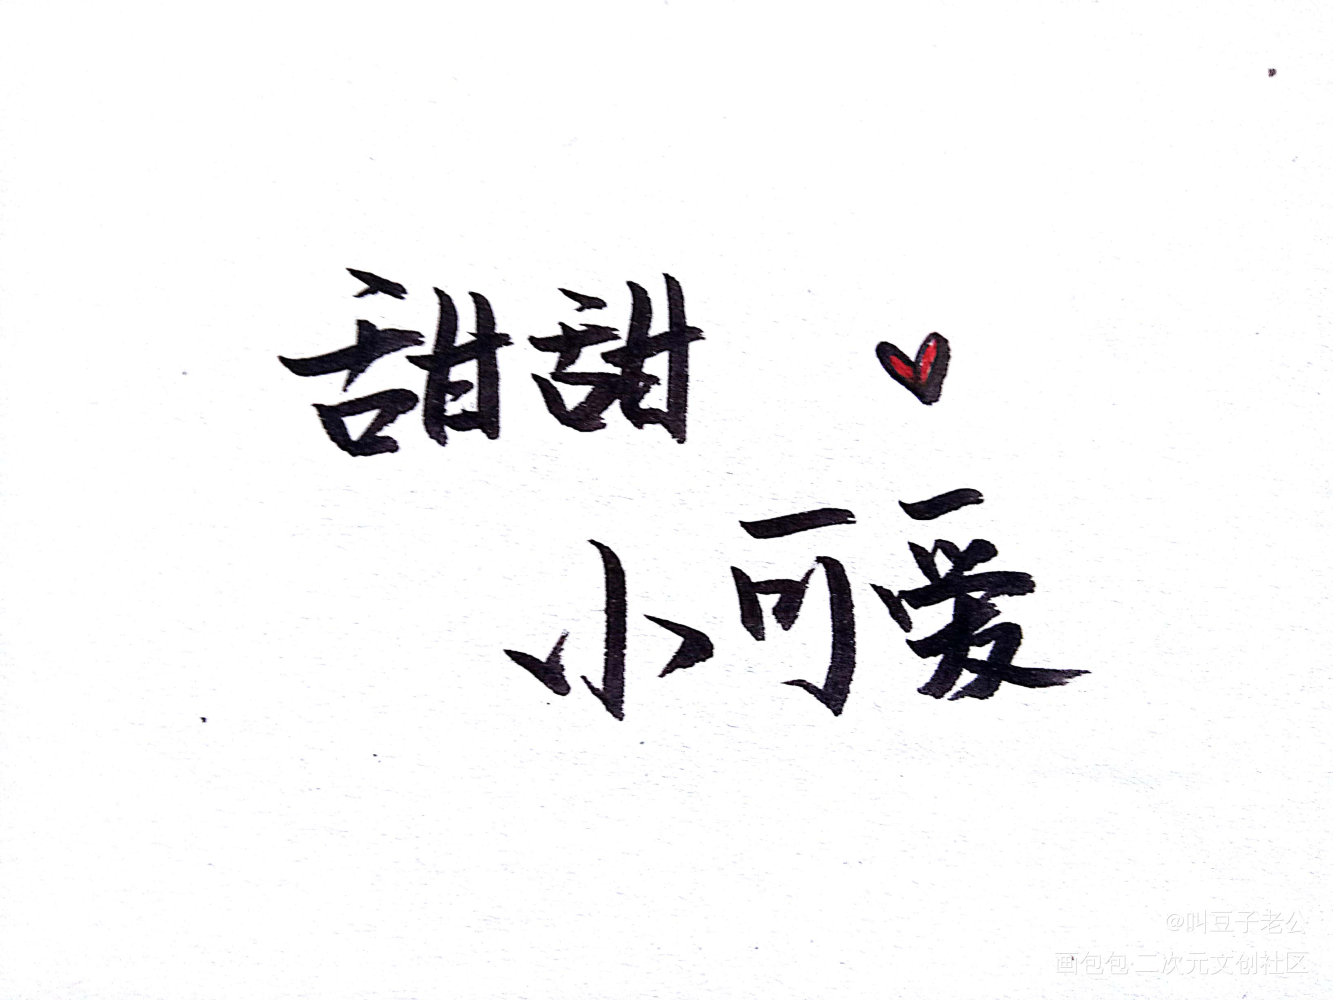 甜甜
小可爱
@叫豆子老公
画包包·二次元文创社区